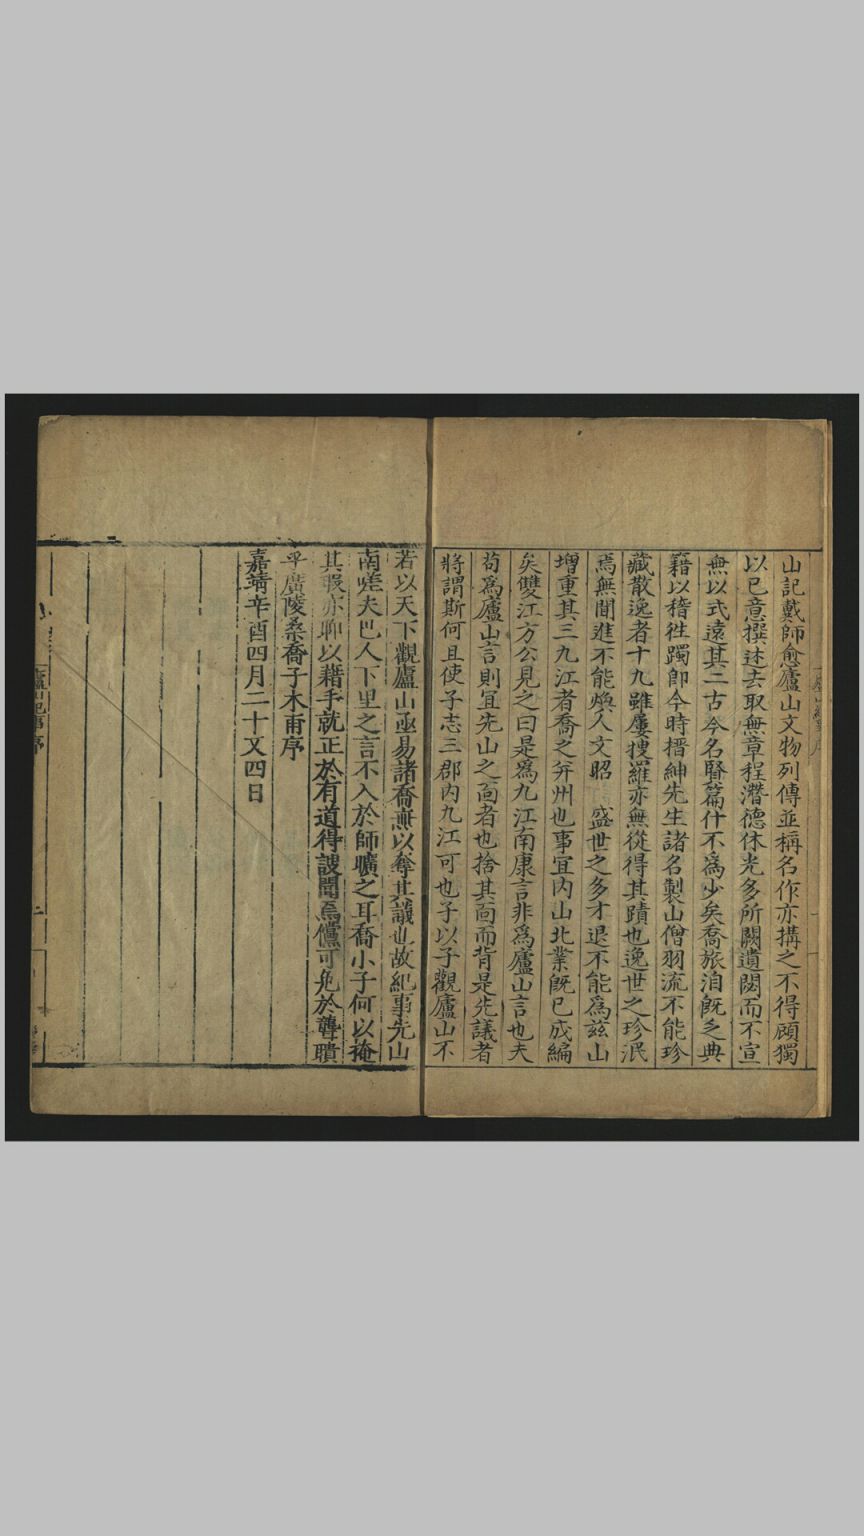 山記戴師愈廬山文物列傳並稱名作亦搆之不得顧獨
以已意撰述去取無章程潛德休光多所闕遺闕而不宣
無以式遠其二古今名賢篇什不為少矣喬旅泊旣乏典
籍以稽徃躅卽今時搢紳先生諸名製山僧羽流不能珍
藏散逸者十九雖屢搜羅亦無從得其蹟也逸世之珍泯
焉無聞進不能煥人文昭 盛世之多才退不能為茲山
增重其三九江者喬之幷州也事宜內山北業旣已成編
矣雙江方公見之曰是爲九江南康言非爲廬山言也夫
茍爲廬山言則宜先山之面者也捨其面而背是先議者
將謂斯何且使子志三郡內九江可也子以子觀廬山不
若以天下觀廬山亟易諸喬無以奪其議也故紀事先山
南嗟夫巴人下里之言不入於師曠之耳喬小子何以掩
其瑕亦聊以藉手就正於有道得謏聞焉儻可免於聾聵
乎廣陵桑喬子木甫序
嘉靖辛酉四月二十又四日
廬山紀事 序